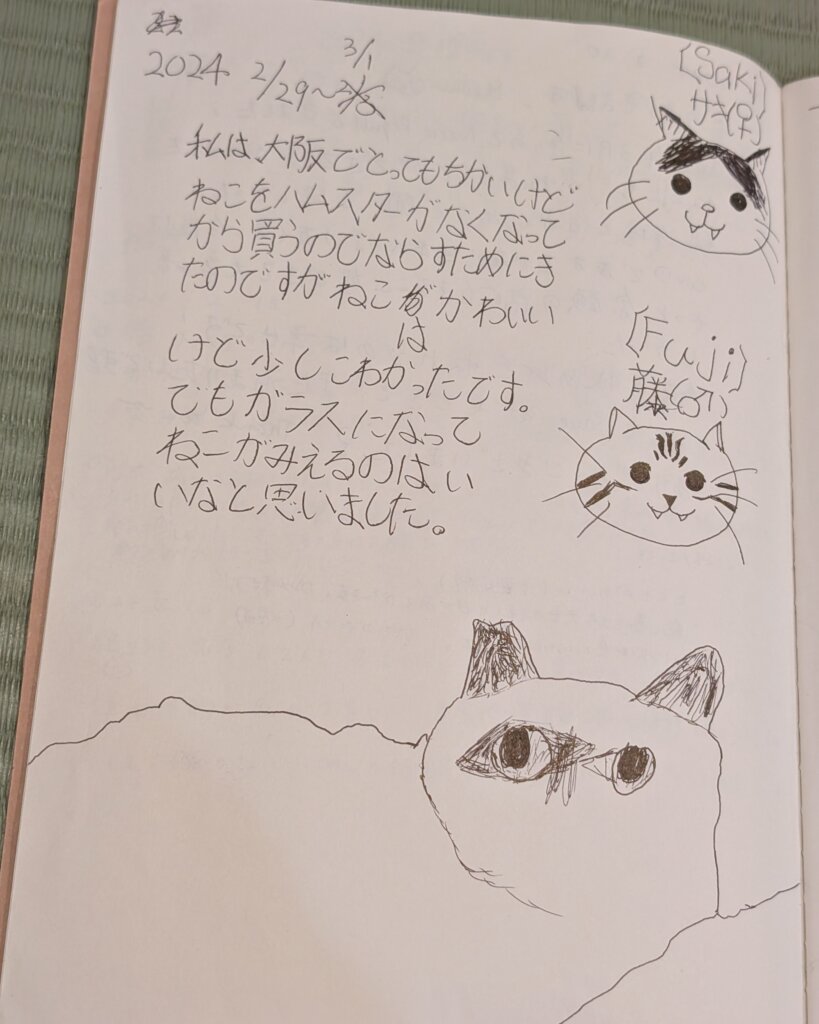 2024 2/29〜3/1
私は、大阪でとってもちかいけど
ねこをハムスターがなくなって
から買うのでならすためにき
たのですがねこはかわいい
けど少しこわかったです。
でもガラスになって
ねこがみえるのはい
いなと思いました。
{Saki}
サキ(♀)
{Fuji}
藤(♂)